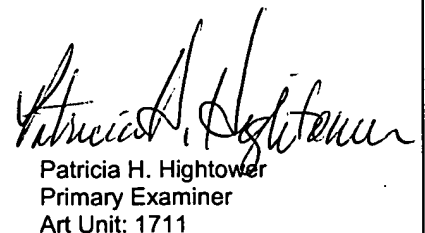 Patricia H. Hightower
Patricia H. Hightower
Primary Examiner
Art Unit: 1711